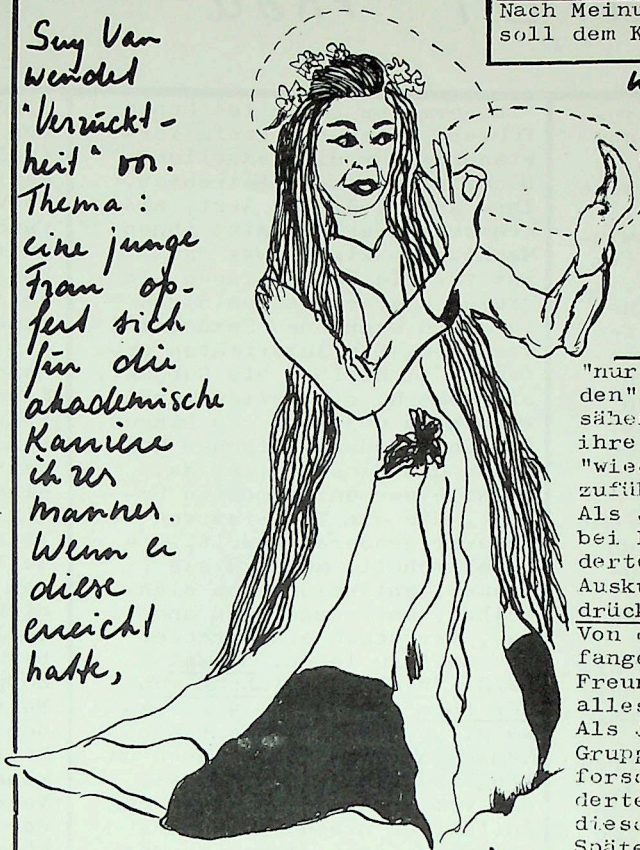 Nach Meinu
soll dem K
Suy Van
wendet
"Verzückt-
heit" vor.
Thema:
eine junge
Frau op-
fert sich
für die
akademische
Karriere
ihres
Mannes.
Wenn er
diese
erreicht
hatte,
"nur
den"
sähe
ihre
"wie
zufü
Als
bei
derte
Ausku
drück
Von
fange
Freun
alles
Als J
Grupp
forsc
derte
diese
Späte